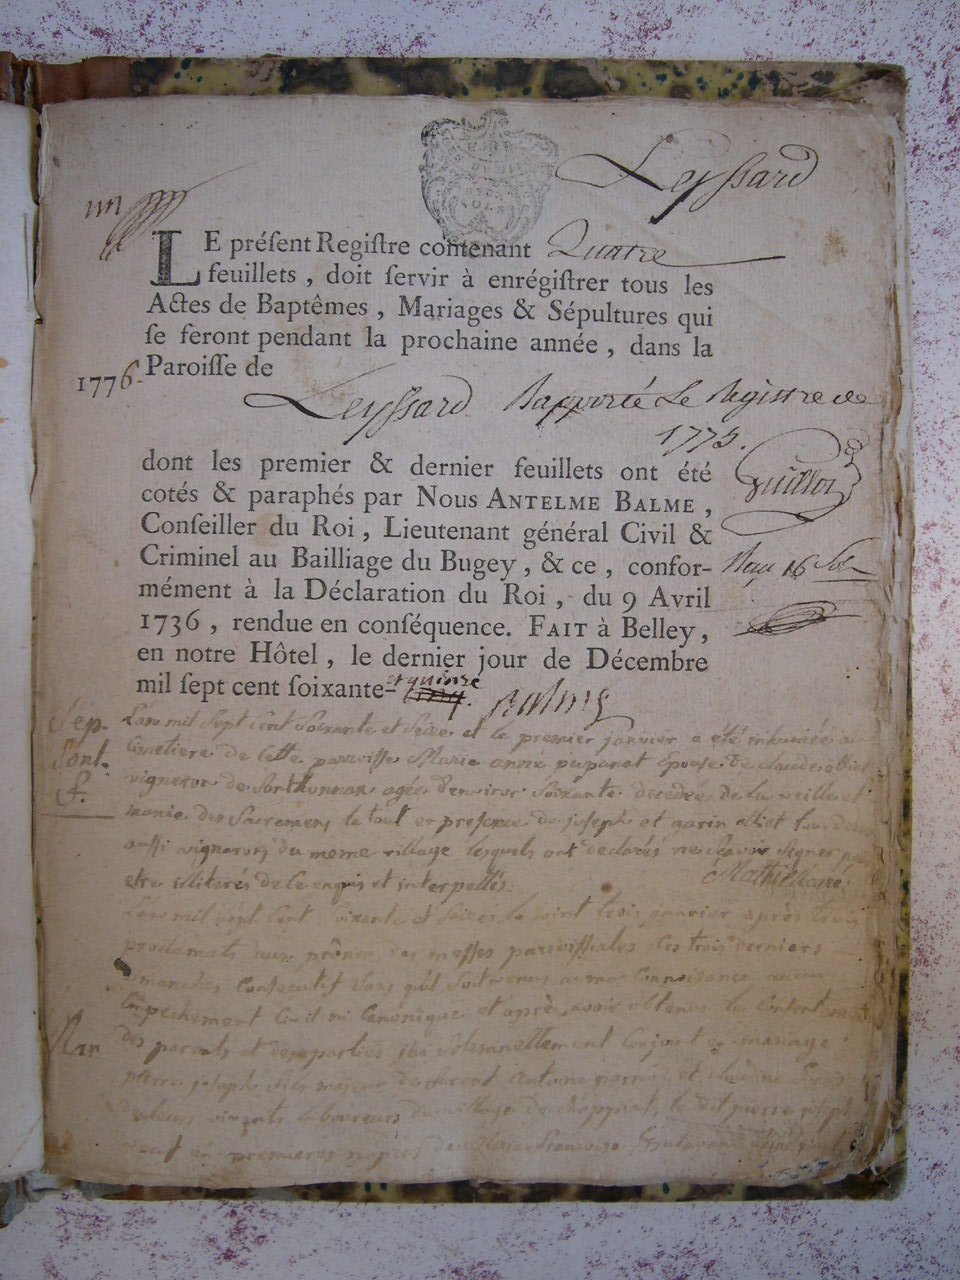 Leyssard
un
LE préſent Regiſtre contenant Quatre
feuillets, doit ſervir à enrégiſtrer tous les
Actes de Baptêmes, Mariages & Sépultures qui
ſe feront pendant la prochaine année, dans la
Paroiſſe de
1776.
Leyssard Rapporté Le Registre de
1775.
dont les premier & dernier feuillets ont été
cotés & paraphés par Nous ANTELME BALME,
Conſeiller du Roi, Lieutenant général Civil &
Criminel au Bailliage du Bugey, & ce, confor-
mément à la Déclaration du Roi, du 9 Avril
1736, rendue en conſéquence. FAIT à Belley,
en notre Hôtel, le dernier jour de Décembre
mil ſept cent ſoixante-et quinze
Balme
Guillot
Reçu 16
Sep.
Sont.
f.
Lan mil Sept Cent Soixante et Seize et le premier janvier a été inhumée au
Cimetiere de Cette parroisse Marie anne Epouse De claude
vigneron de Sonthonnax agée d'environ Soixante decedée de la veille et
munie des Sacremens le tout en presence de joseph et
aussi vignerons du meme village lesquels ont declarés ne Scavoir Signer pour
etre illiterés de Ce enquis et interpellés.
Lan mil Sept Cent Soixante et Seize le vint trois janvier apres trois
proclamats aux prônes des messes parroissiales les trois derniers
dimanches Consecutifs Sans qu'il Soit venu a ma Connoissance aucun
Empechement Civil ni Canonique et après avoir obtenu le Consentement
Mar
des parents et des parties jai Solemnellement Conjoint en mariage
pierre joseph fils majeur de antoine et
laboureurs du village de le dit pierre joseph
en premieres nopces de Marie françoise